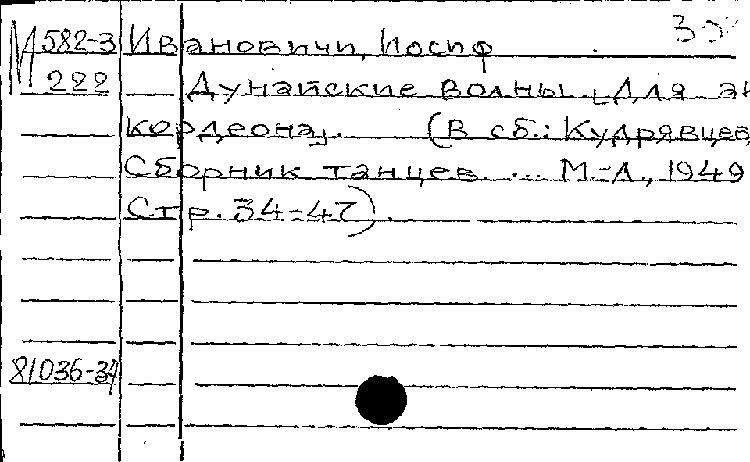 М 582-3 Ивановичи, Иосиф
222 Дунайские волны. [Для ак
кордеона]. (В сб.: Кудрявцев,
Сборник танцев. ... М.-Л., 1949
Стр. 34-47).
81036-34